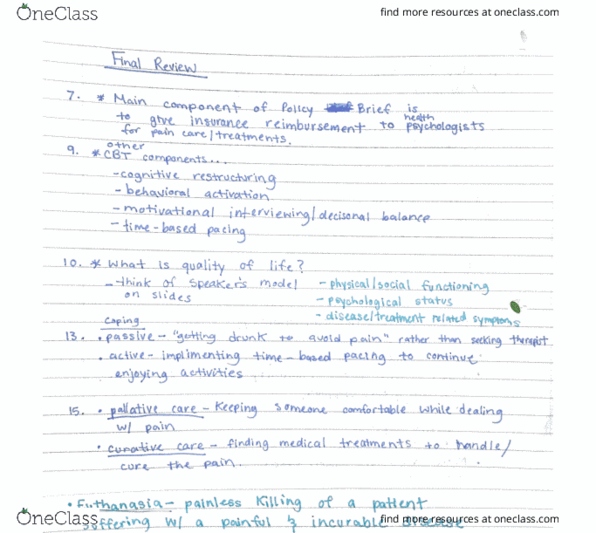 OneClass
find more resources at oneclass.com
Final Review
7. * Main component of Policy Brief is
to give insurance reimbursement to health psychologists
for pain care/treatments.
9. * other CBT components...
- cognitive restructuring
- behavioral activation
- motivational interviewing/decisonal balance
- time-based pacing
10. * What is quality of life?
- think of speaker's model
on slides
- physical/social functioning
- psychological status
- disease/treatment related symptoms
coping
13. • passive - "getting drunk to avoid pain" rather than seeking therapist
• active - implimenting time-based pacing to continue
enjoying activities
15. • pallative care - Keeping someone comfortable while dealing
w/ pain
• curative care - finding medical treatments to handle/
cure the pain.
• Euthanasia - painless Killing of a patient
suffering w/ a painful & incurable disease
OneClass
find more resources at oneclass.com